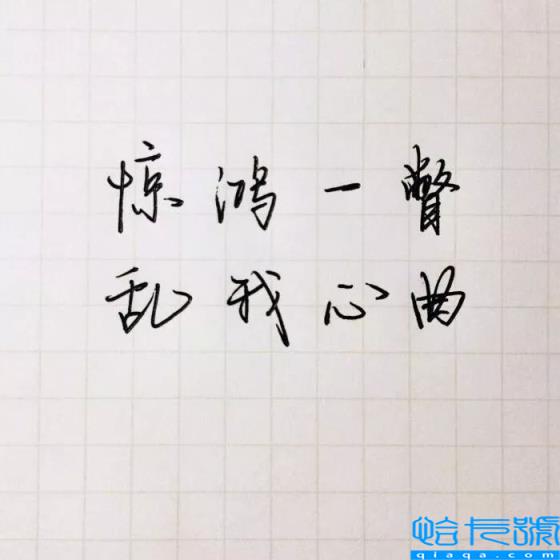 惊鸿一瞥
乱我心曲
哈卡号
qiaqa.com